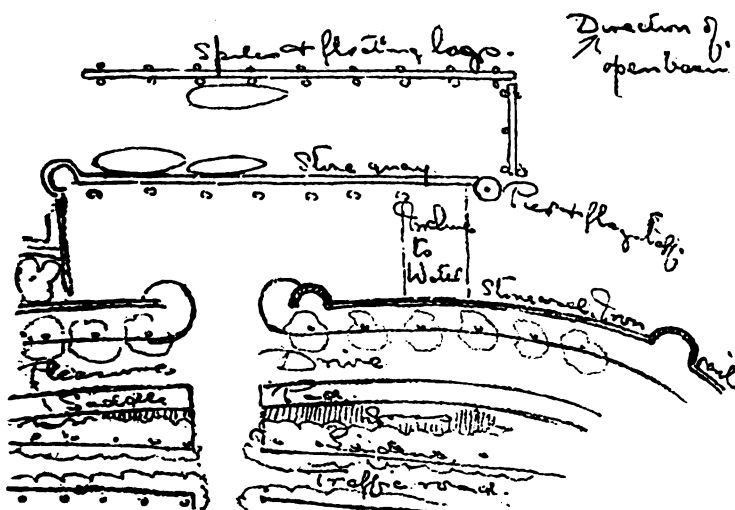 Direction of
open beam
Spiles & floating logs.
Stone quay
Pier & flagstaff.
Incline
to
Water
Stone and Iron
rail
Pleasure Drive
Saddle Pad
Gardens
Traffic road.